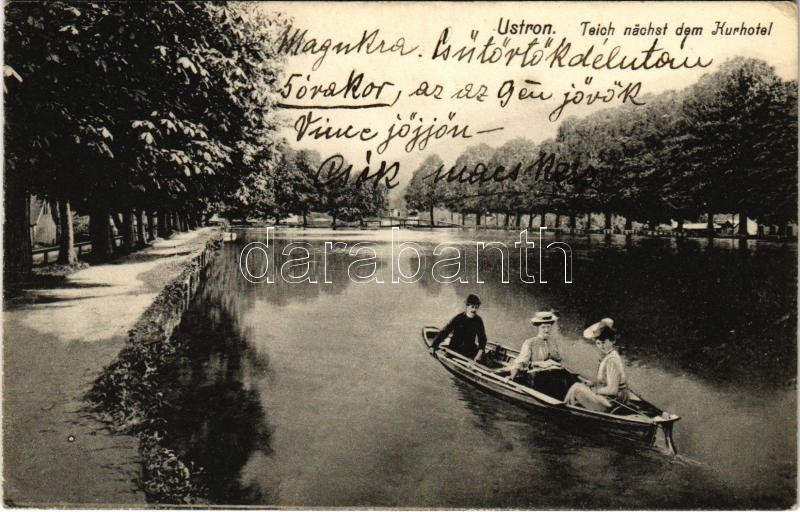 Ustron. Teich nächst dem Kurhotel
Magukra. Csütörtök délután
5 órakor, az az 9én jövök
Vince jöjjön —
Csók
darabanth